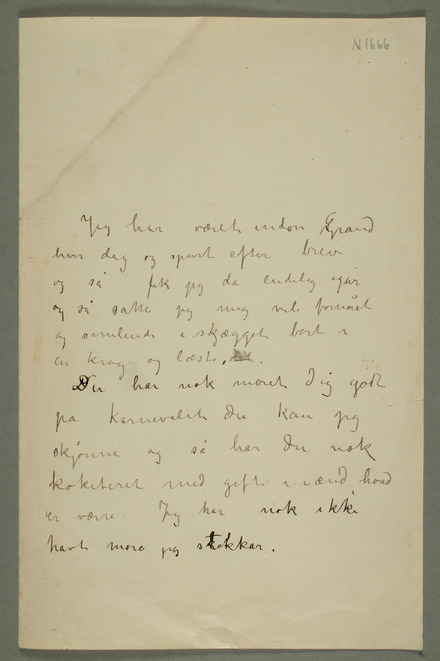 N 1666
Jeg har været indom Grand
hver dag og spurt efter brev
og så fik jeg da endelig igår
og så satte jeg mig vel fornøiet
og smilende i skjægget bort i
en krog og læste.
Du har nok moret dig godt
på karnevalet du kan jeg
skjønne og så har du nok
koketeret med gifte mænd hvad
er værre. Jeg har nok ikke
havt mora jeg stakkar.